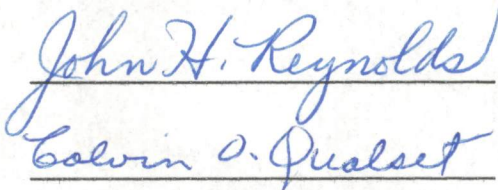 John H. Reynolds
Calvin O. Qualset